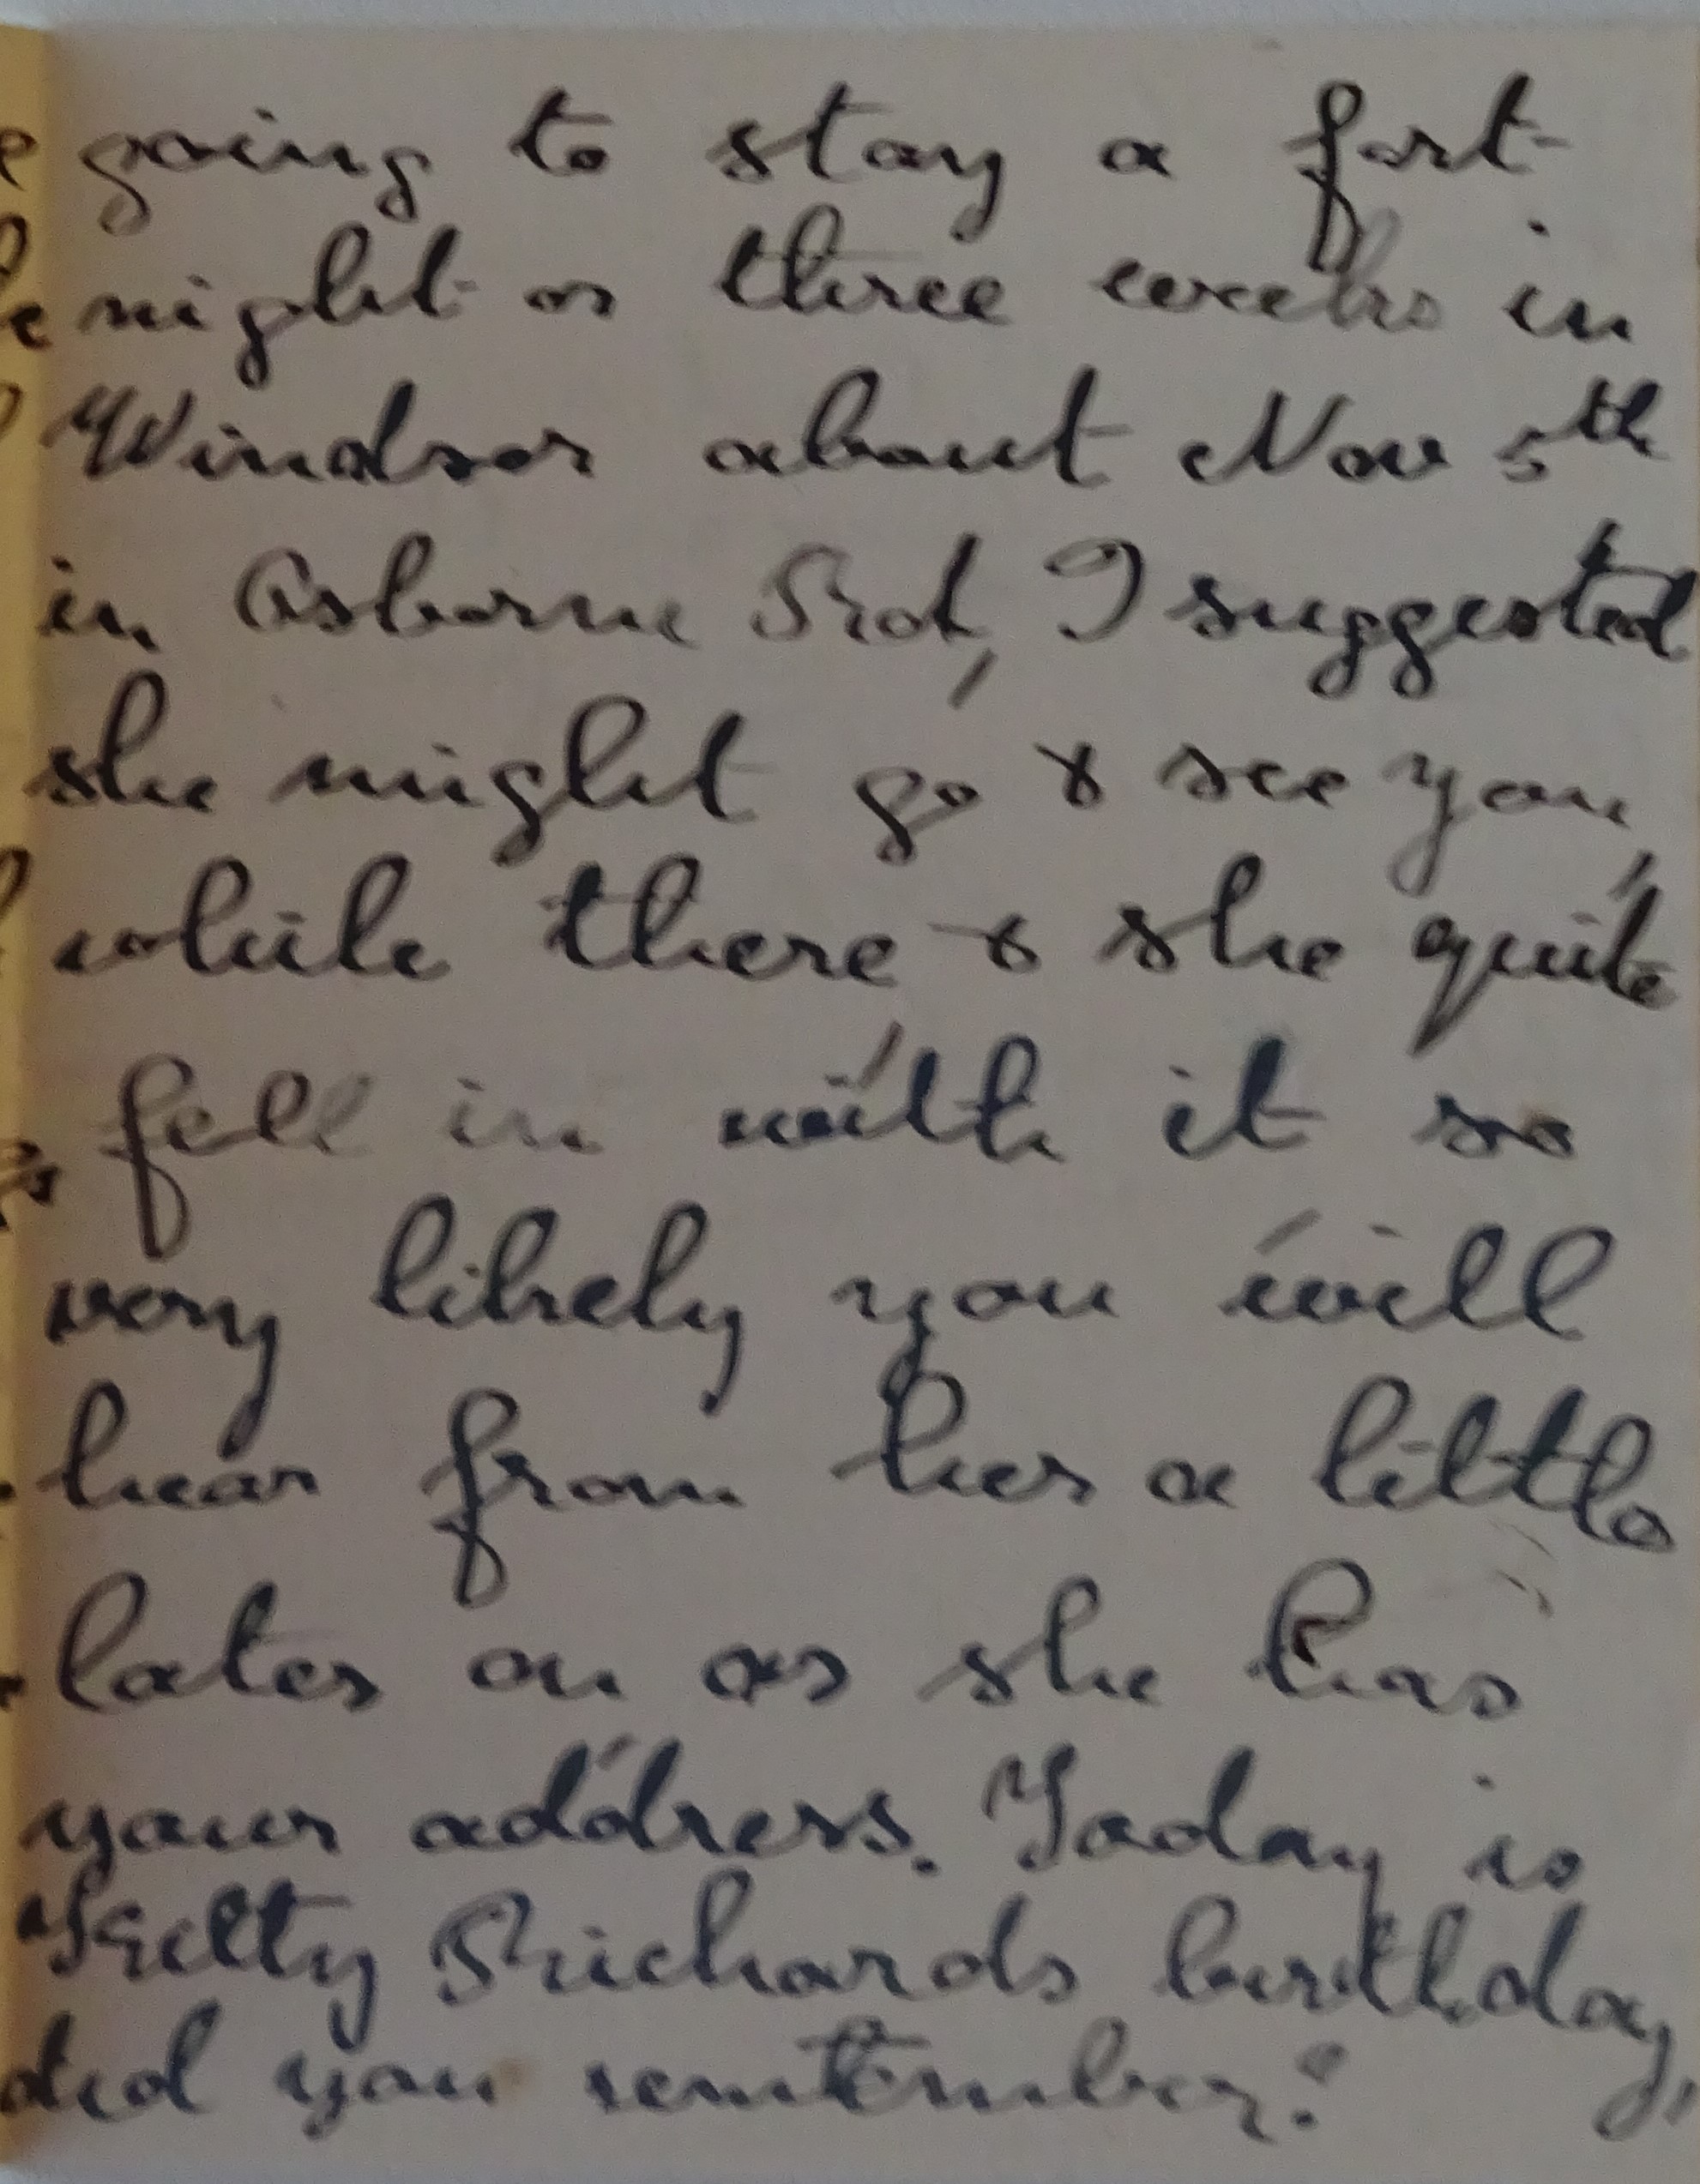 going to stay a fort-
night or three weeks in
Windsor about Nov 5th
in Osborne Rd, I suggested
she might go & see you,
while there & she quite
fell in with it so
very likely you will
hear from her a little
later on as she has
your address. Today is
Richards birthday,
did you remember?